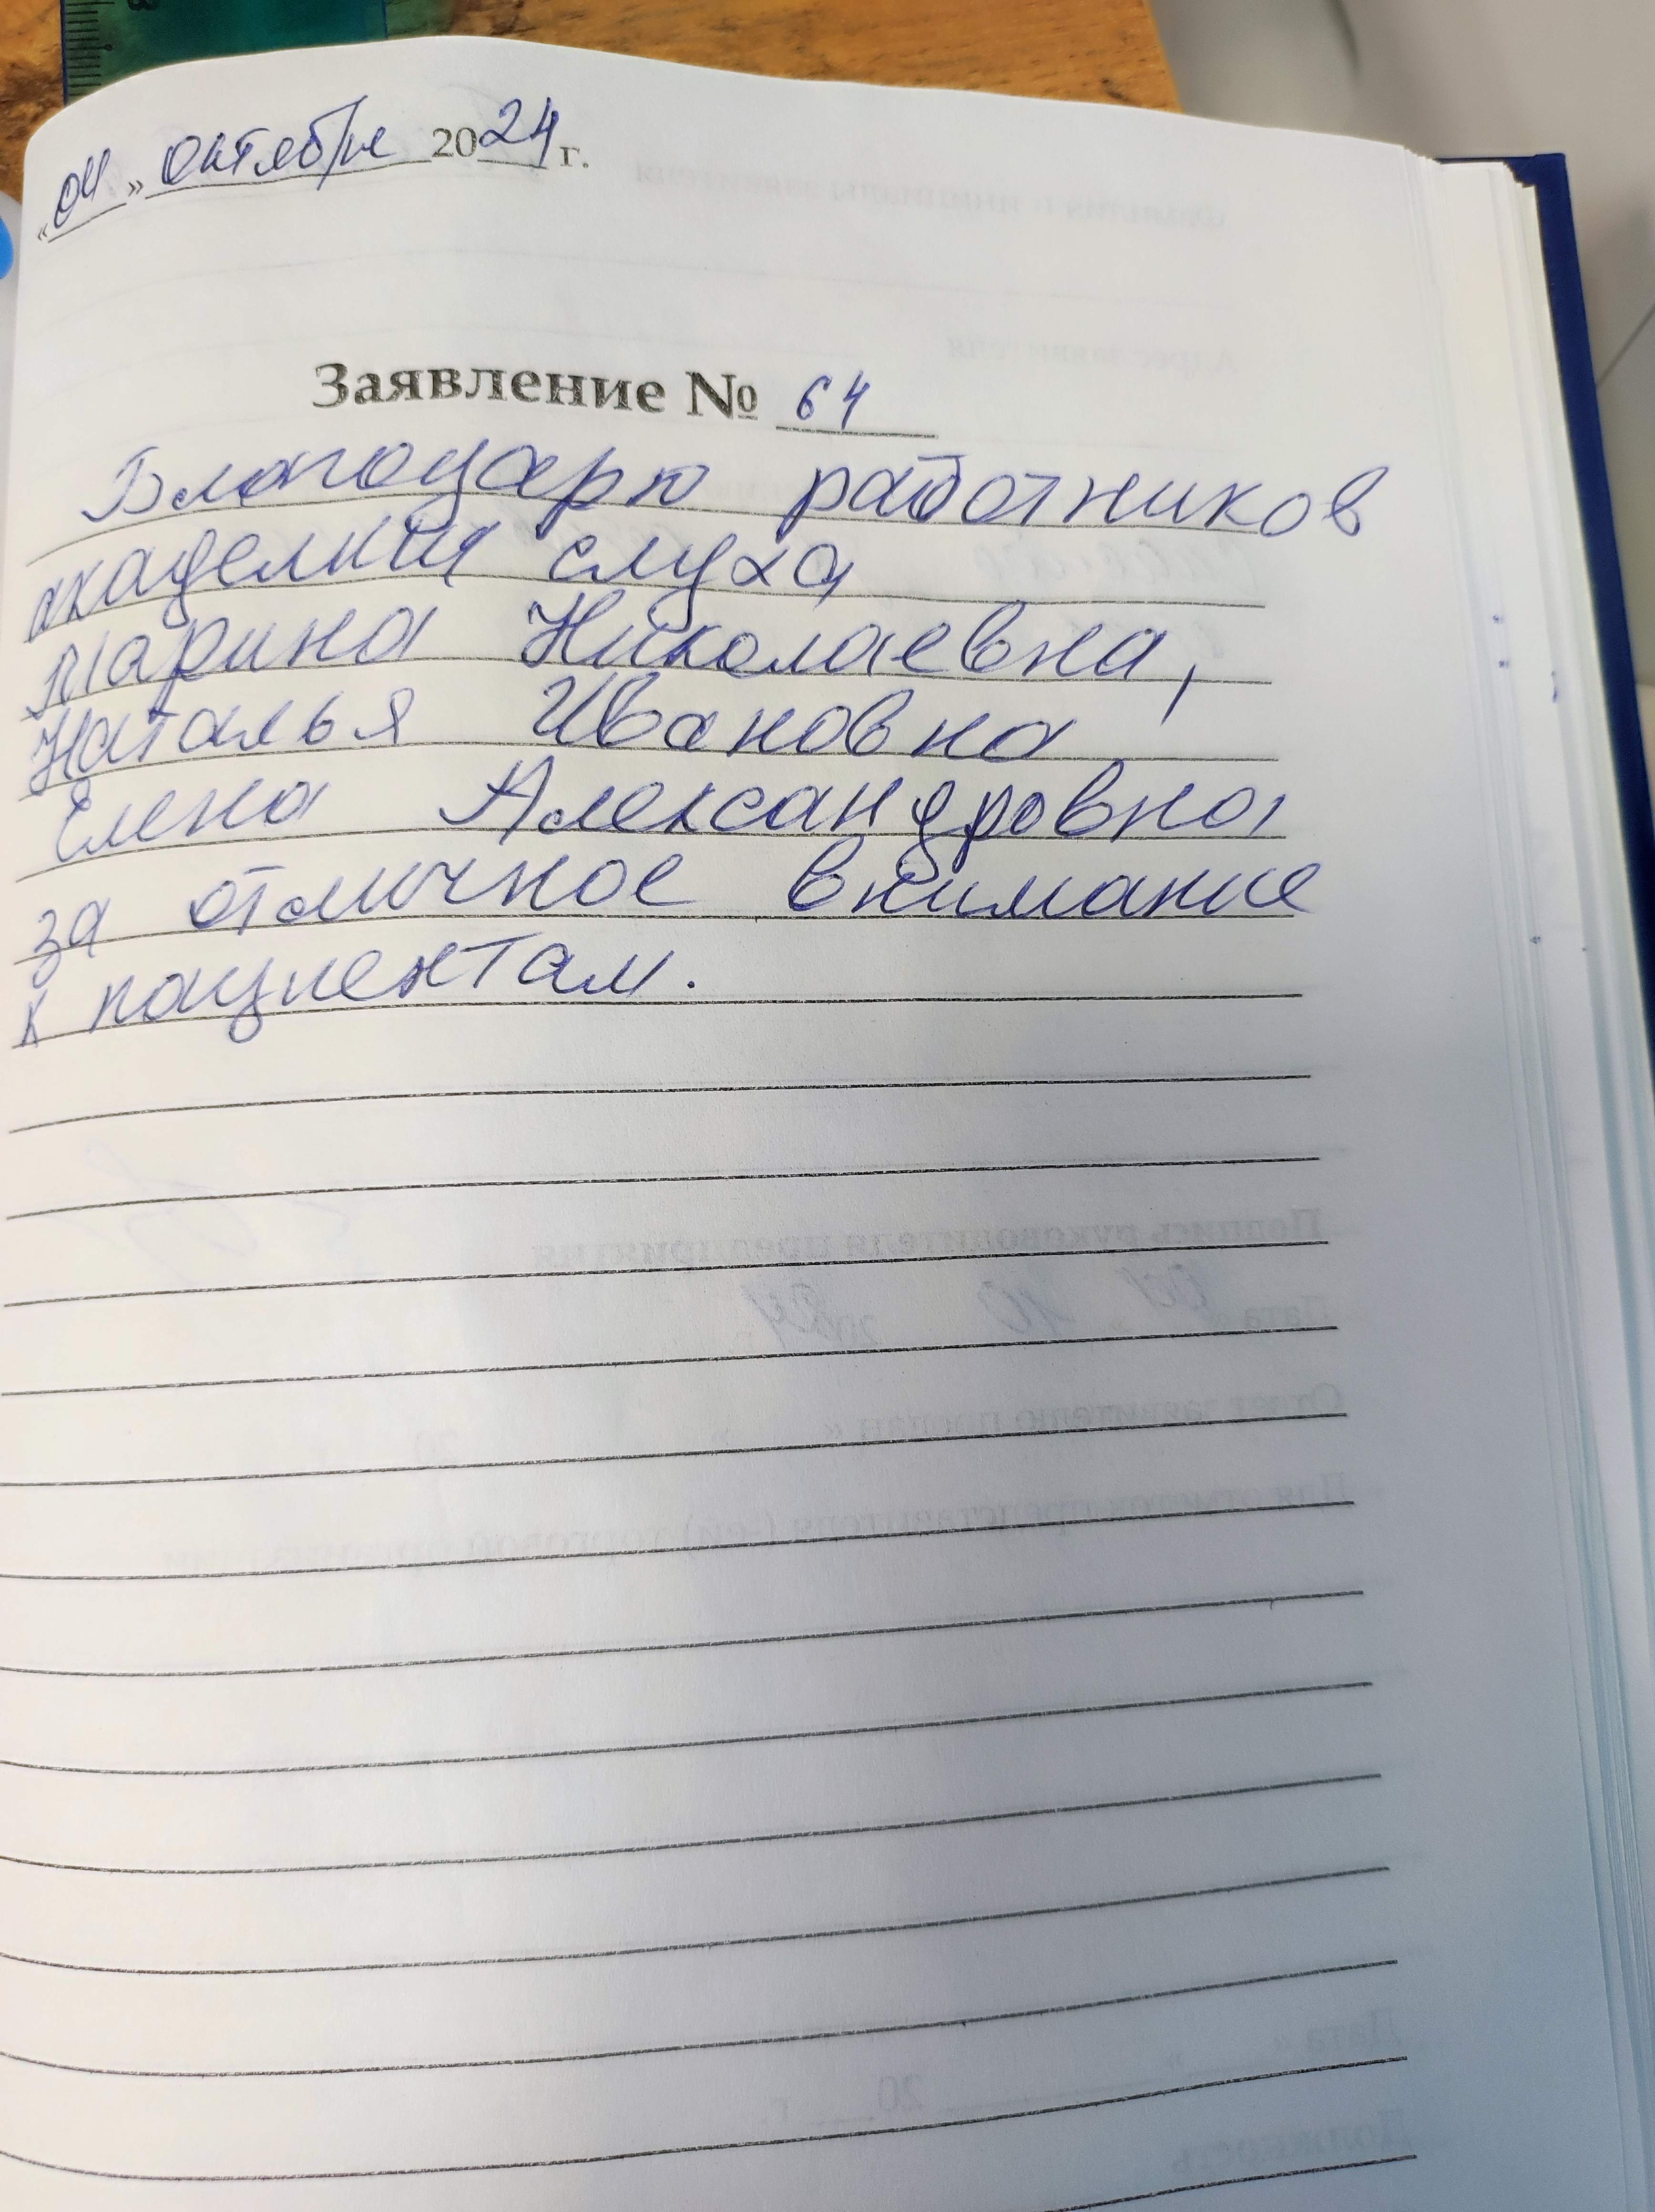 «04» октября 2024 г.
Заявление № 64
Благодарю работников
академии слуха
Марина Николаевна,
Наталья Ивановна
Елена Александровна
за отличное внимание
к пациентам.